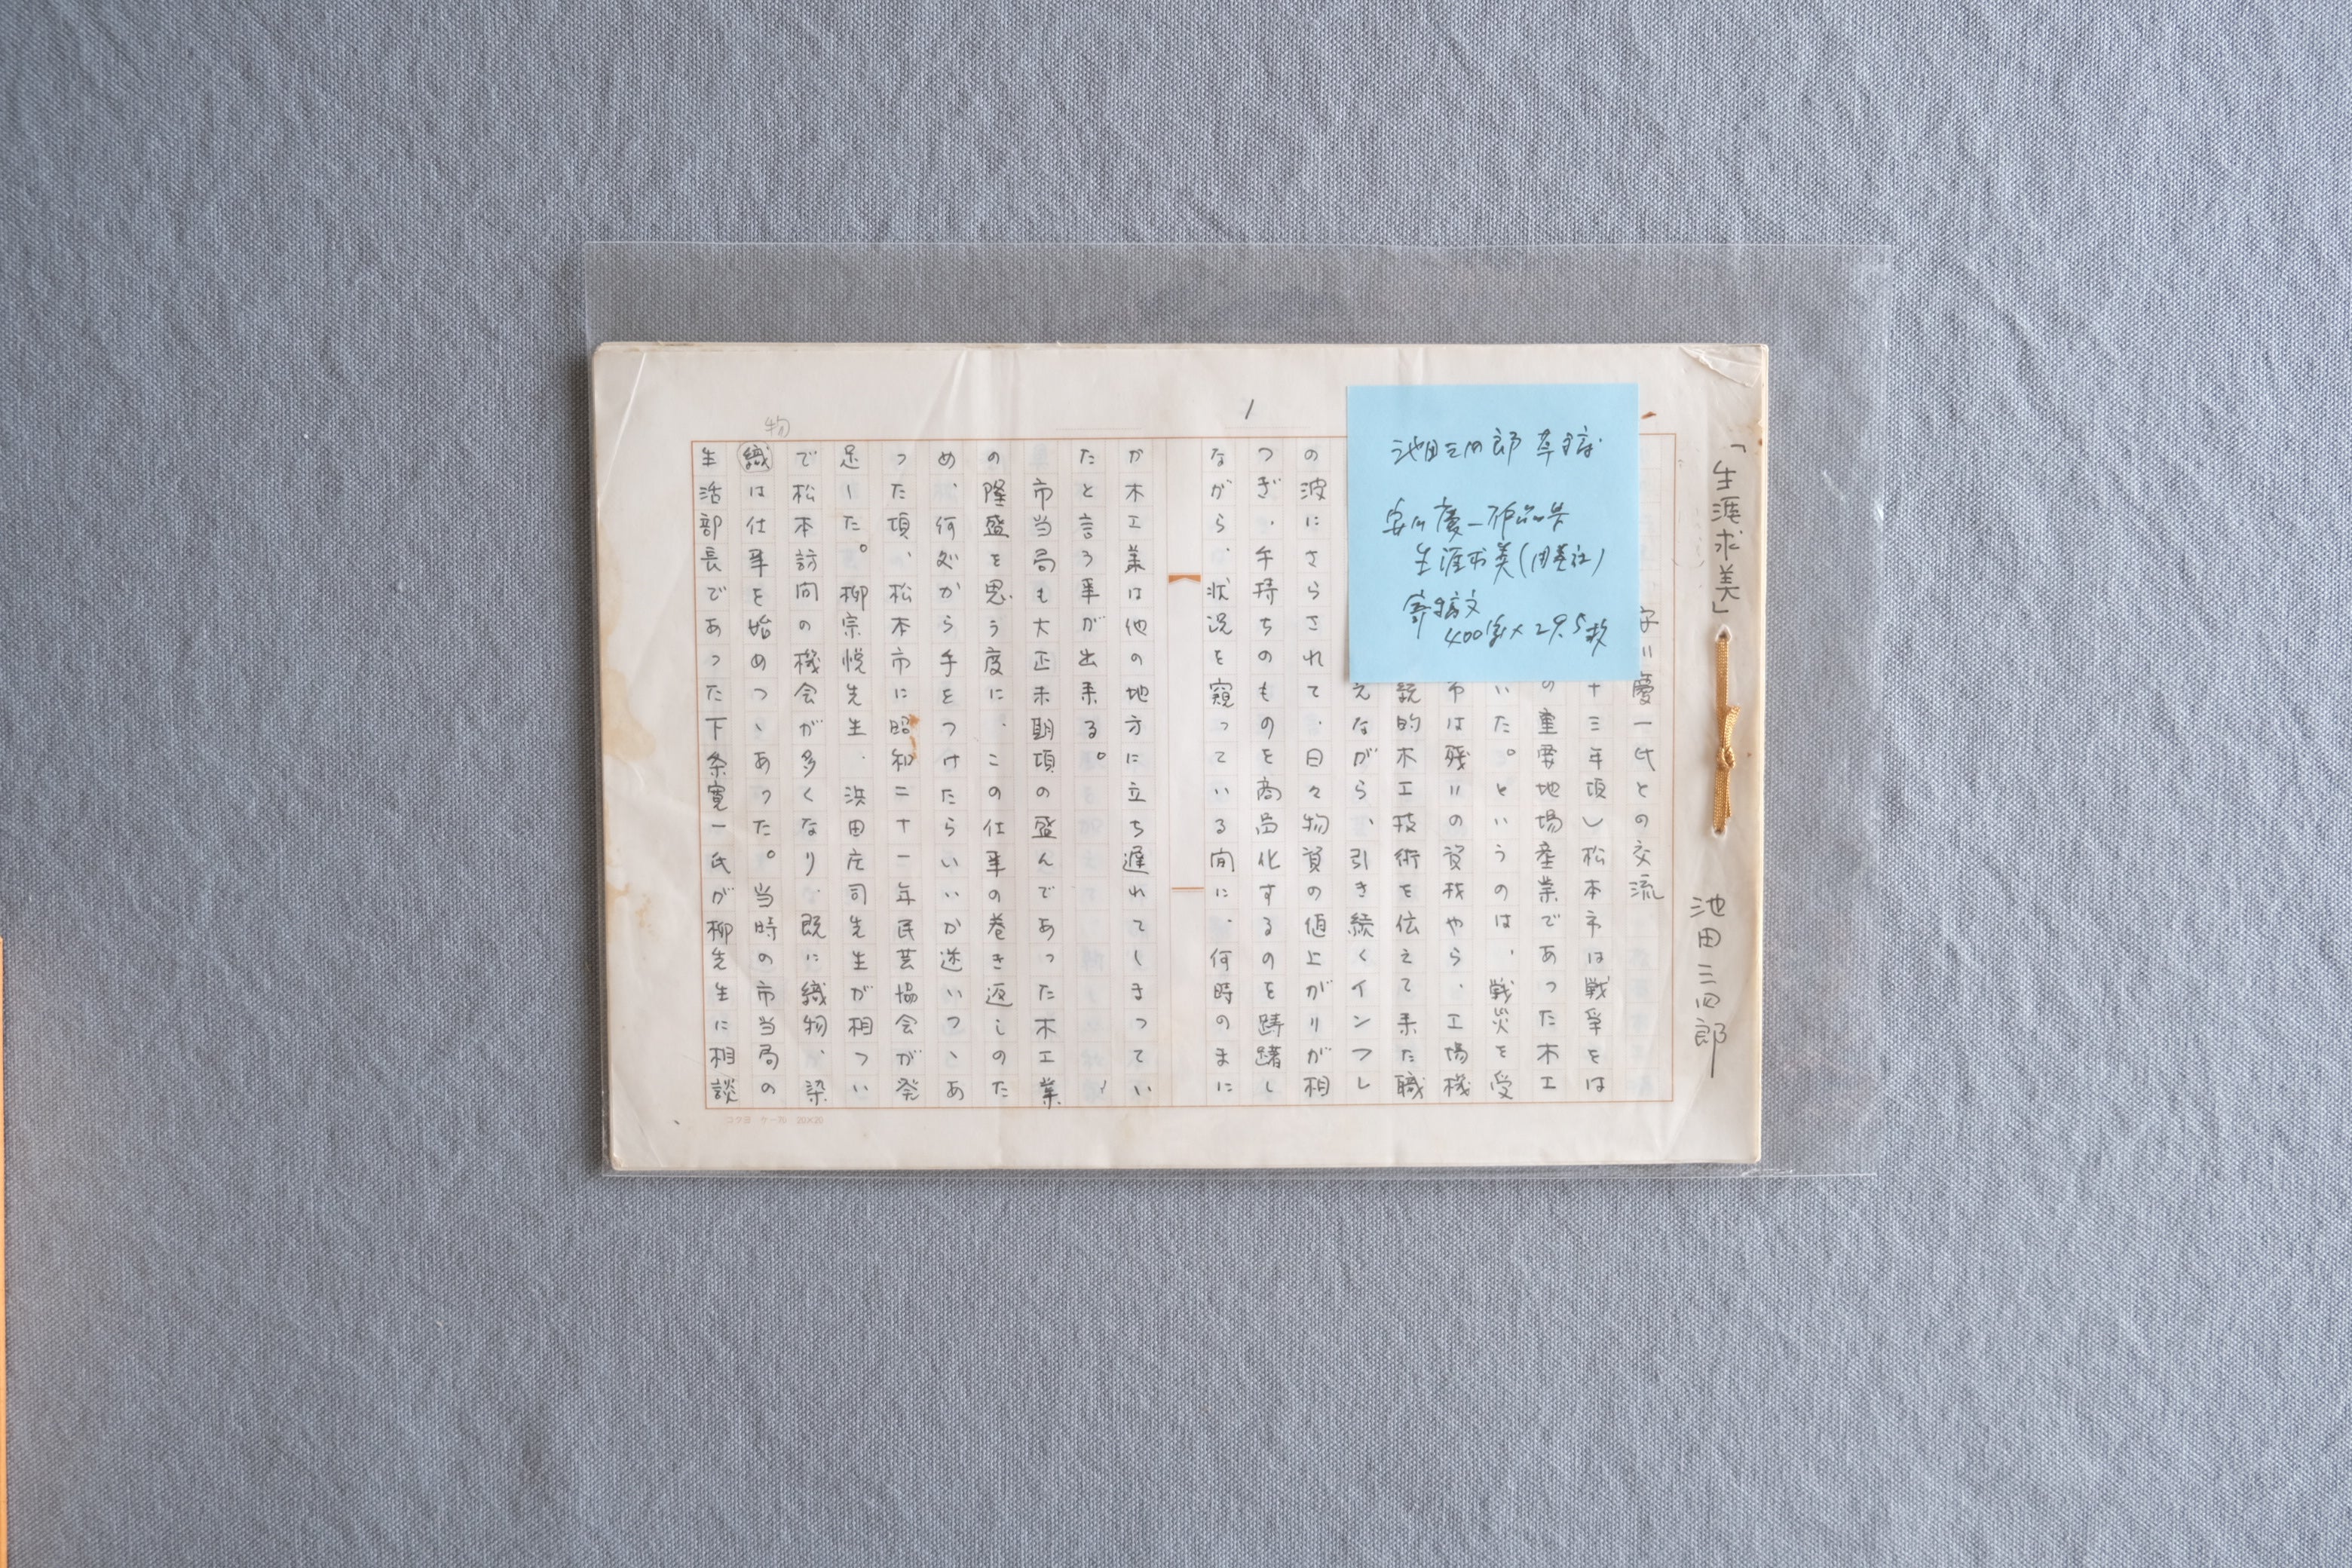 「生涯求美」 池田三四郎
川慶一氏との交流
十三年頃）松本市は戦争をは
の重要地場産業であった木工
いた。というのは、戦災を受
市は残りの資材やら、工場機
統的木工技術を伝えて来た職
えながら、引き続くインフレ
の波にさらされて、日々物資の値上がりが相
つぎ、手持ちのものを商品化するのを躊躇し
ながら、状況を窺っている間に、何時のまに
か木工業は他の地方に立ち遅れてしまってい
たと言う事が出来る。
市当局も大正末期頃の盛んであった木工業
の隆盛を思う度に、この仕事の巻き返しのた
め、何処から手をつけたらいいか迷いつゝあ
った頃、松本市に昭和二十一年民芸協会が発
足した。柳宗悦先生、浜田庄司先生が相つい
で松本訪問の機会が多くなり、既に織物、染
織は仕事を始めつゝあった。当時の市当局の
物
生活部長であった下条寛一氏が柳先生に相談
1
池田三四郎 草稿
安川慶一作品集
生涯求美（用美社）
寄稿文
400字×29.5枚
コクヨ ケー70 20×20